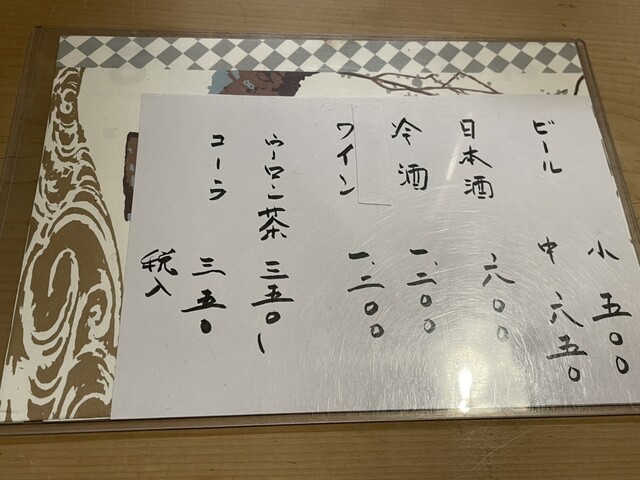 ビール 小 五〇〇
中 六五〇
日本酒 六〇〇
冷酒 一、三〇〇
ワイン 一、三〇〇
ウーロン茶 三五〇
コーラ 三五〇
税入